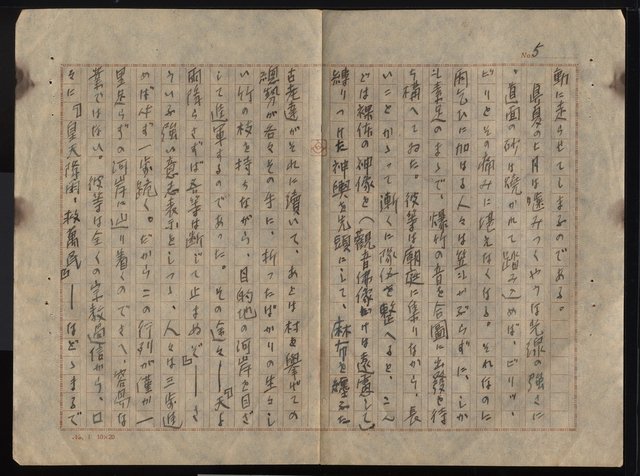 No. 5
動に走らせてしまふのである。
真夏の七月は噛みつくやうな光線の强さに
、直面の砂は焼かれて踏み込めば、ピリッ、
ビリとその痛みに堪えなくなる。それなのに
雨乞ひに加はる人々は笠もかぶらずに、しか
も素足のまゝで、爆竹の音を合圖に出發を待
ち構へてゐた。彼等は廟庭に集りながら、長
いことかゝつて漸くに隊伍を整へると、こん
どは裸体の神像を(觀音佛像だけは遠慮して)
縛りつけた神輿を先頭にして、麻布を纏ふた
古老達がそれに續いて、あとは村を擧げての
總勢が各々その手に、折つたばかりの生々し
い竹の枝を持ちながら、目的地の河岸を目ざ
して進軍するのであつた。その途々——「天よ
雨降らさずば吾等は断じて止まぬぞ——」さ
ういふ强い意志表示をしつゝ、人々は三歩進
めば必ず一歩跪く。だからこの行列が僅か一
里足らずの河岸に辿り着くのでさへ、容易な
業ではない。彼等は全くの宗教過信から、口
々に「皇天降雨、救萬民」——はどこまで
No. 1 10×20